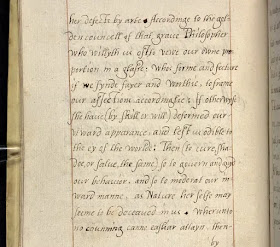 her defects by arte. Accordinge to the gol-
den councell of that grave Philosopher
who willyth us ofte vewe our owne pro
portion in a glasse: Whos forme and feature
if we fynde fayer and worthie, to frame
our affections accordingle: If otherwyse
she haue (by skill or will) deformed our
outward apparance, and left us odible to
the ey of the worlde: Then to cure, sha-
doe, or salue the same) so to govern and gyde
our behavior, and so to moderat our in
ward manne, as Nature her selfe may
seeme to be deceaved in us. Wherunto
no counning canne easliar attayn, then
by